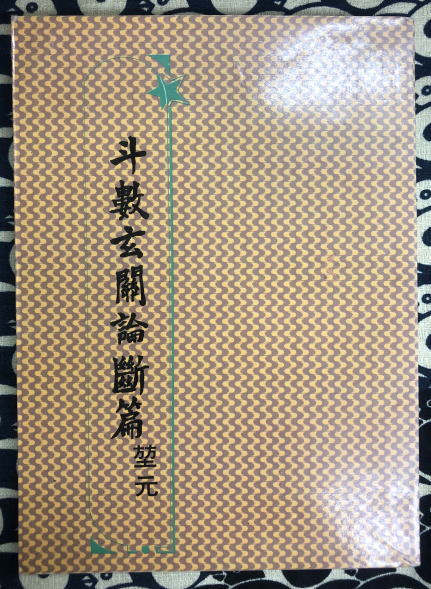 斗數玄關論斷篇
堃元